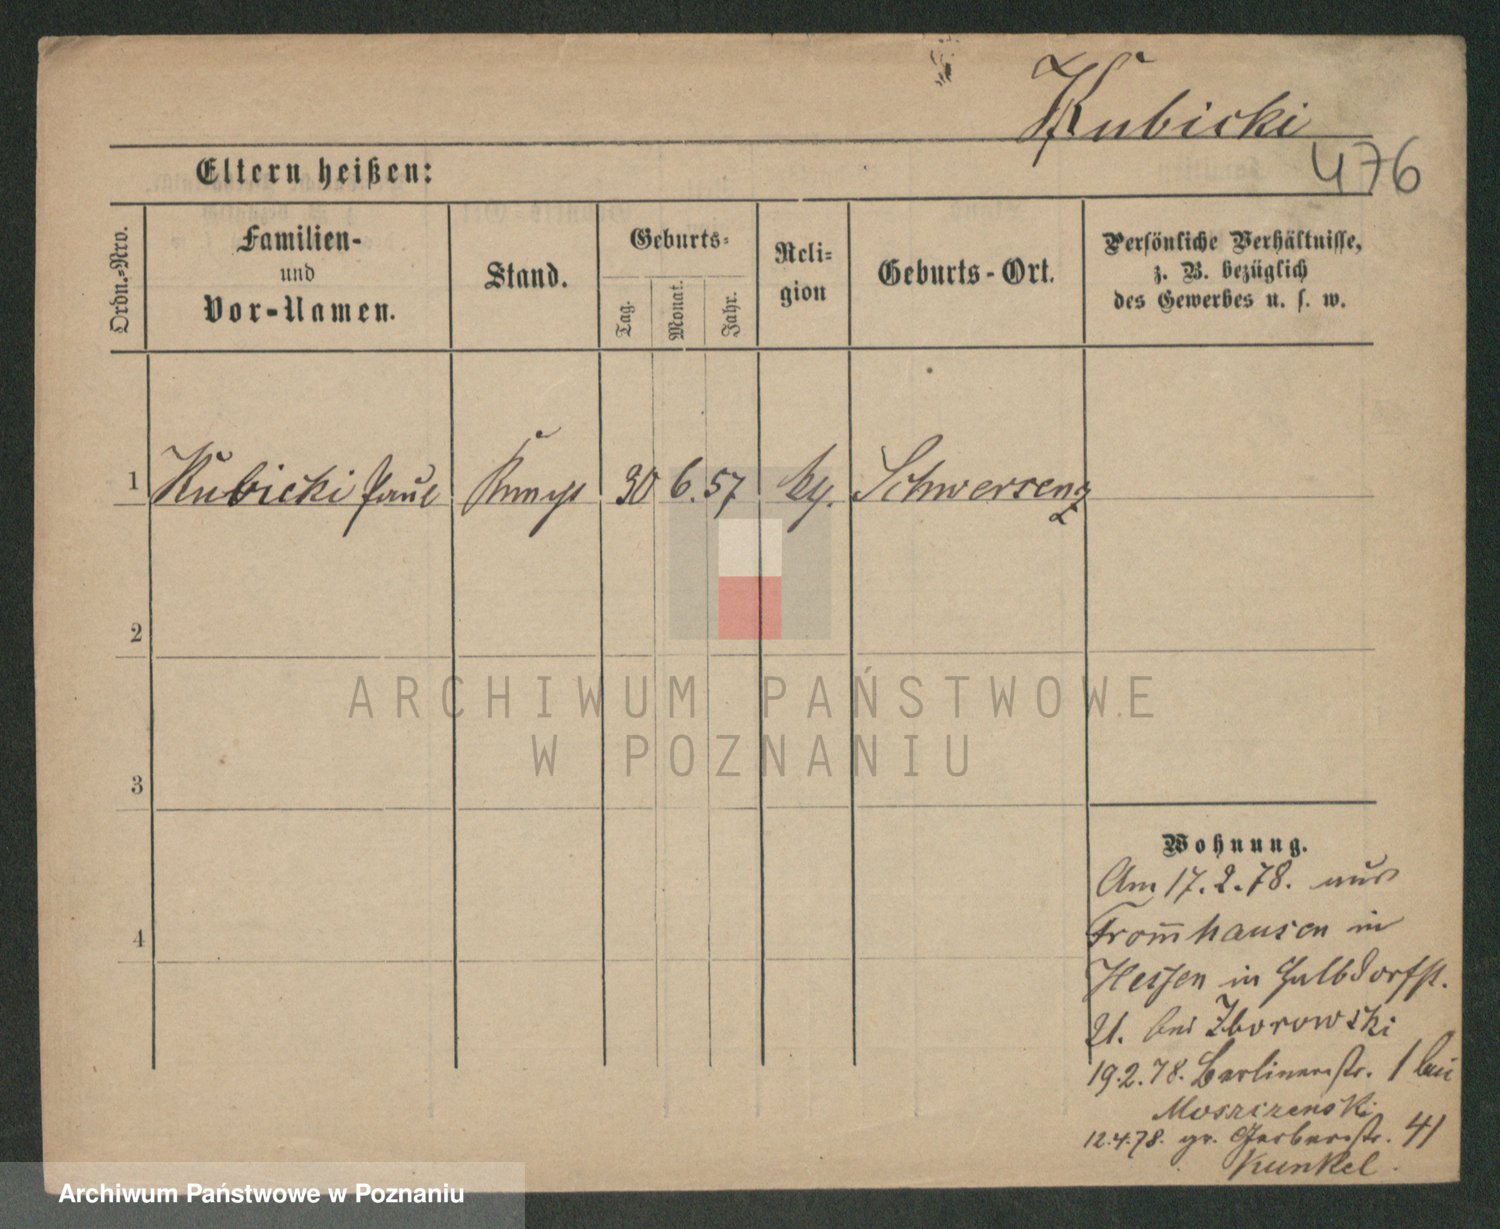 Kubicki
476
Eltern heißen:
Ordn.-Nro.
Familien-
und
Vor-Namen.
Stand.
Geburts-
Tag.
Monat.
Jahr.
Reli-
gion
Geburts-Ort.
Persönliche Verhältnisse,
z. B. bezüglich
des Gewerbes u. s. w.
1 Kubicki Paul 30 6. 57 Schwersenz
2
3
4
Wohnung.
Am 17.2.78. aus
From̄hausen in
Hessen in Halbdorfstr.
21. bei Zborowski
19.2.78. Berlinerstr. 1 bei
Moszczenski
12.4.78. gr. Gerberstr. 41
Kunkel.
ARCHIWUM PAŃSTWOWE
W POZNANIU
Archiwum Państwowe w Poznaniu